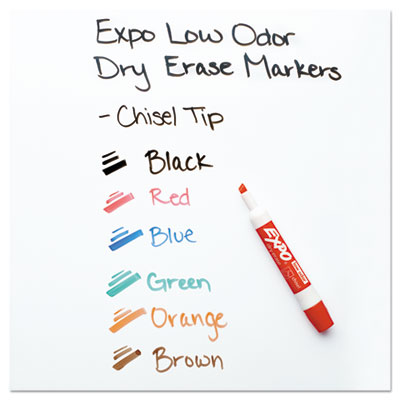 Expo Low Odor
Dry Erase Markers
- Chisel Tip
Black
Red
Blue
Green
Orange
Brown
EXPO